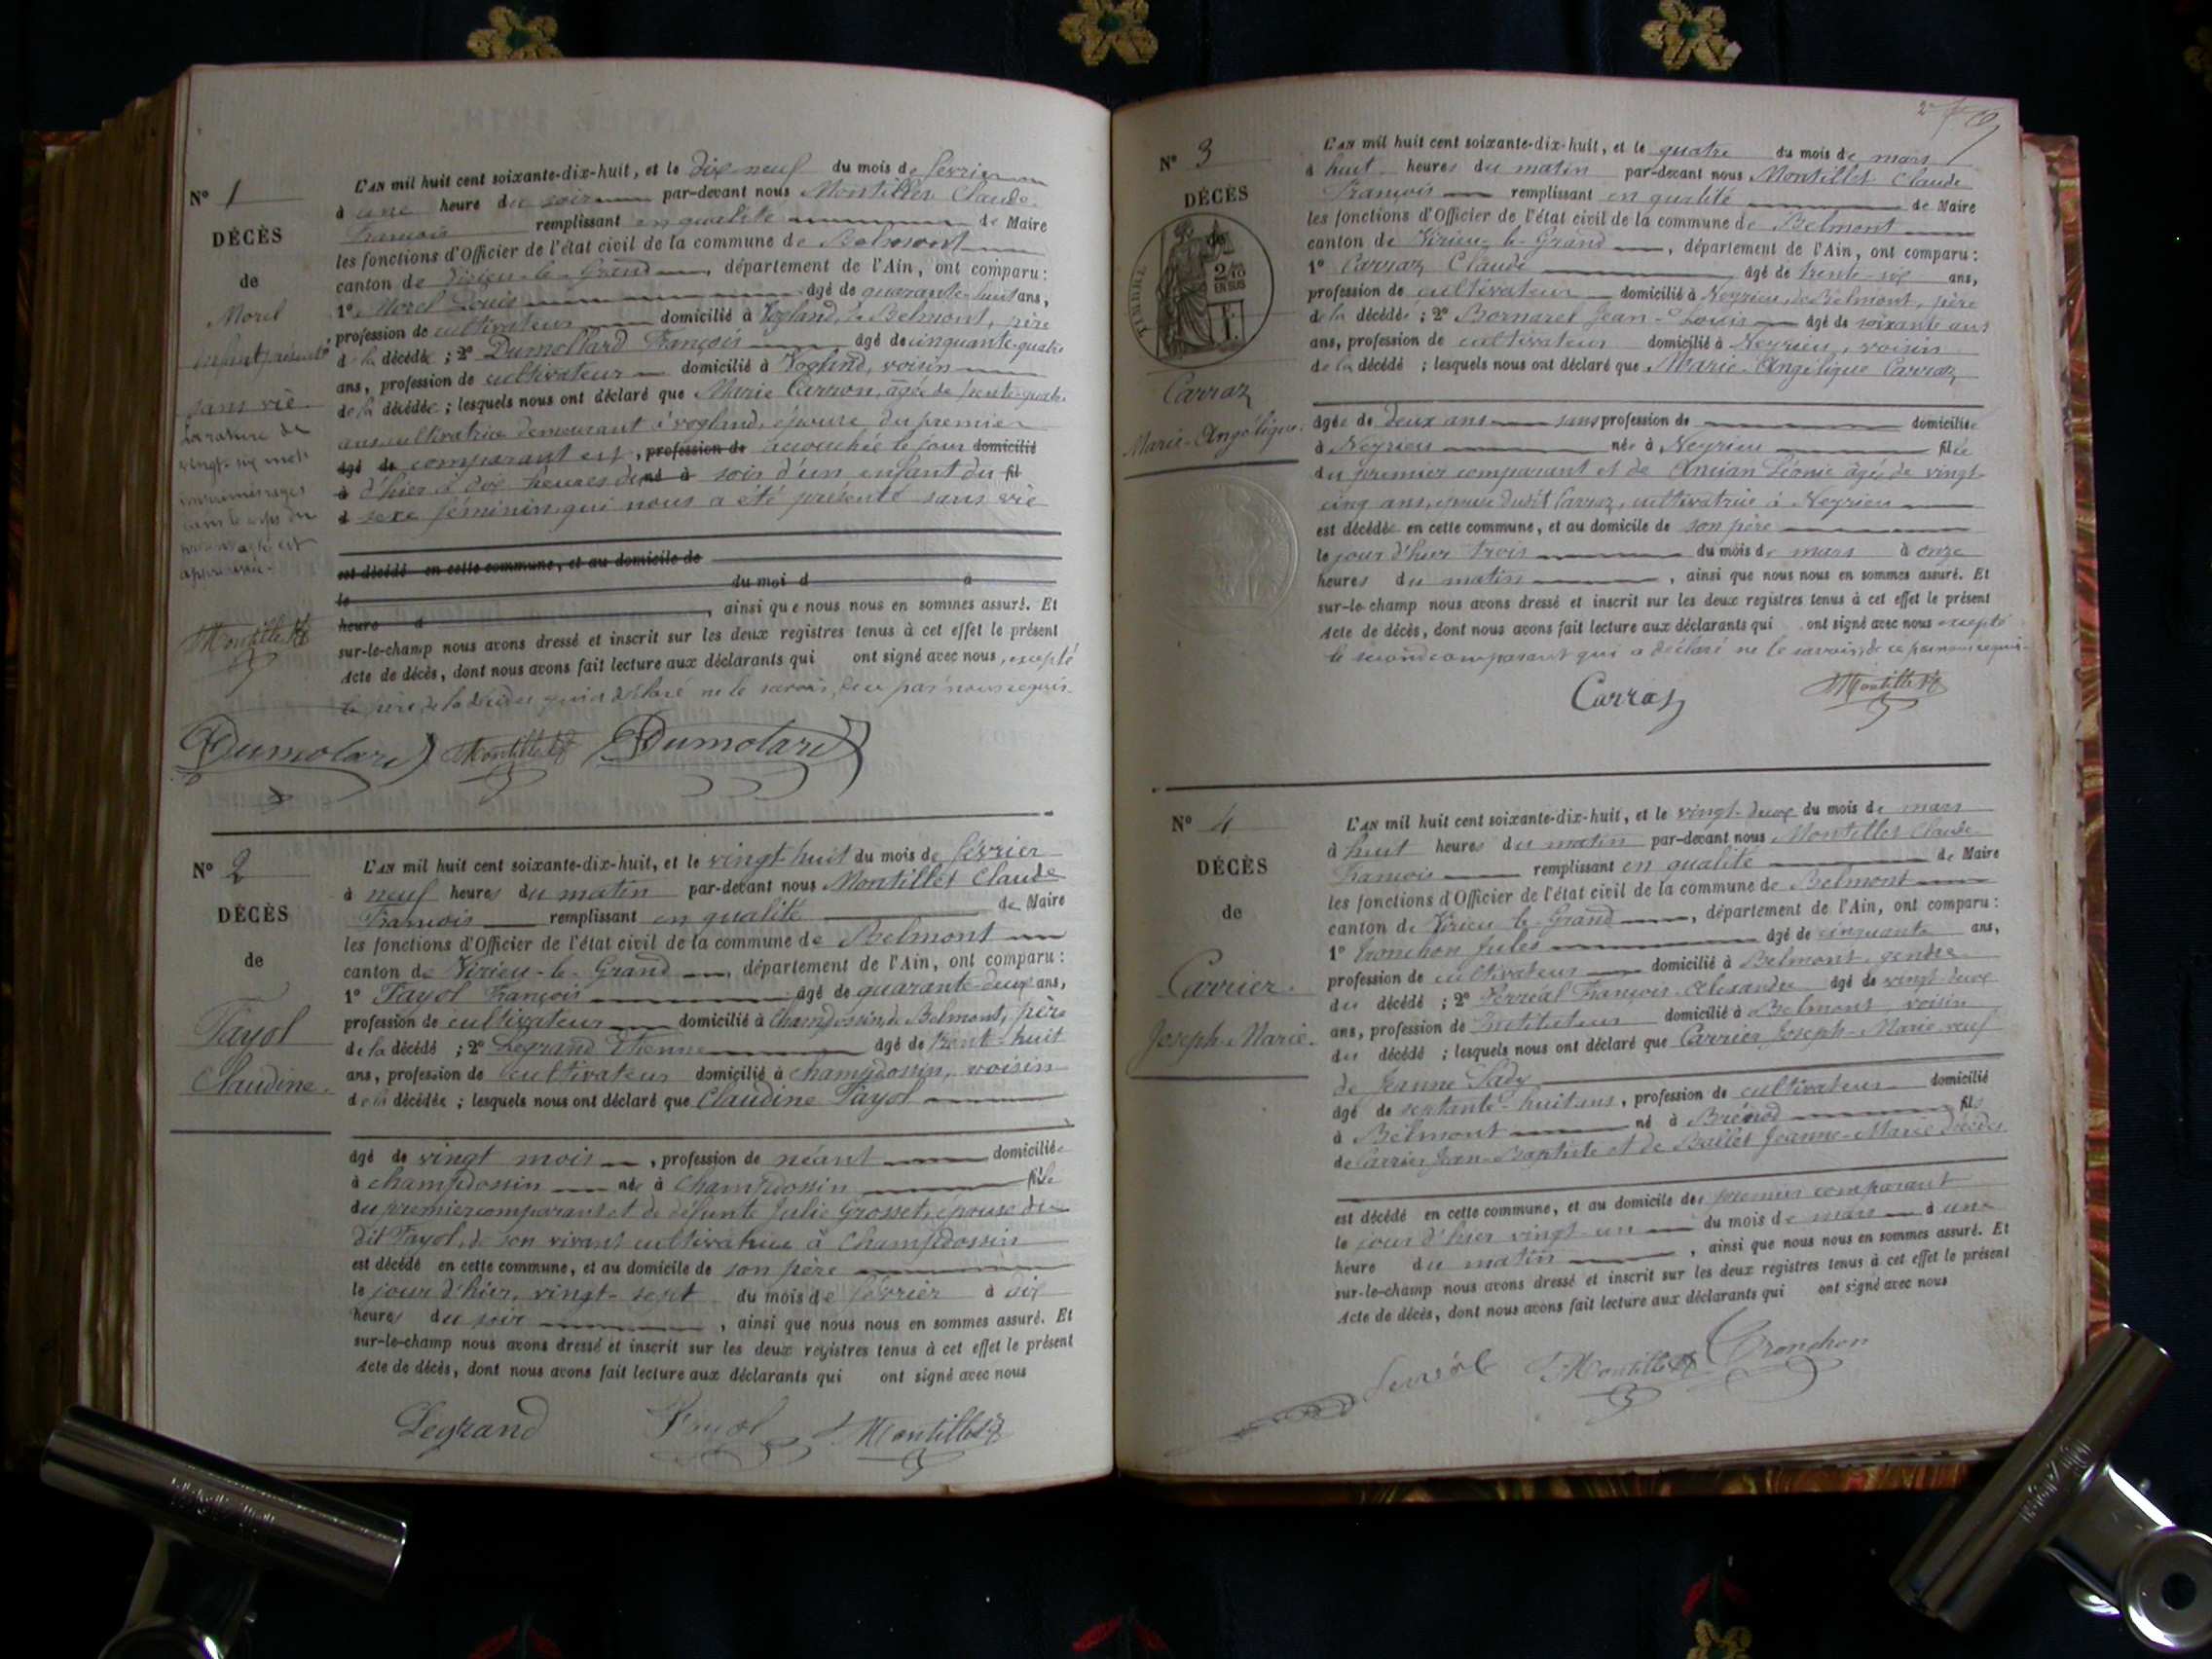 Nº 1
DÉCÈS
de
Morel
enfant présenté
sans vie.
La rature de
vingt-six mots
imprimés rayés
dans le corps du
approuvée.
Montillet
L'AN mil huit cent soixante-dix-huit, et le dix-neuf du mois de février
à une heure du soir par-devant nous Montillet Claude
François remplissant en qualité de Maire
les fonctions d'Officier de l'état civil de la commune de Belmont
canton de Virieu-le-Grand, département de l'Ain, ont comparu :
1º Morel Louis âgé de quarante-huit ans,
profession de cultivateur domicilié à Vogland, de Belmont, père
de la décédée ; 2º Dumollard François âgé de cinquante-quatre
ans, profession de cultivateur domicilié à Vogland, voisin
de la décédée ; lesquels nous ont déclaré que Marie Carron, âgée de trente-quatre
ans, cultivatrice demeurant à Vogland, épouse du premier
âgé de comparant est, profession de accouchée le jour domicilié
à d'hier à dix heures du né à soir d'un enfant du fil
d sexe féminin qui nous a été présenté sans vie
est décédé en cette commune, et au domicile de
le du moi d à
heure d , ainsi que nous nous en sommes assuré. Et
sur-le-champ nous avons dressé et inscrit sur les deux registres tenus à cet effet le présent
Acte de décès, dont nous avons fait lecture aux déclarants qui ont signé avec nous, excepté
le père de la décédée qui a déclaré ne le savoir, de ce par nous requis.
Dumolard Montillet Dumolard
Nº 2
DÉCÈS
de
Fayol
Claudine.
L'AN mil huit cent soixante-dix-huit, et le vingt-huit du mois de février
à neuf heures du matin par-devant nous Montillet Claude
François remplissant en qualité de Maire
les fonctions d'Officier de l'état civil de la commune de Belmont
canton de Virieu-le-Grand, département de l'Ain, ont comparu :
1º Fayol François âgé de quarante-deux ans,
profession de cultivateur domicilié à Champdossin, de Belmont, père
de la décédé ; 2º Legrand Etienne âgé de trente-huit
ans, profession de cultivateur domicilié à Champdossin, voisin
de la décédée ; lesquels nous ont déclaré que Claudine Fayol
âgé de vingt mois, profession de néant domiciliée
à Champdossin née à Champdossin fille
du premier comparant et de défunte Julie Grosset, épouse du
dit Fayol, de son vivant cultivatrice à Champdossin
est décédé en cette commune, et au domicile de son père
le jour d'hier, vingt-sept du mois de février à dix
heures du soir, ainsi que nous nous en sommes assuré. Et
sur-le-champ nous avons dressé et inscrit sur les deux registres tenus à cet effet le présent
Acte de décès, dont nous avons fait lecture aux déclarants qui ont signé avec nous
Legrand Fayol Montillet
Nº 3
DÉCÈS
de
TIMBRE
2/10 EN SUS
Carraz
Marie-Angélique.
L'AN mil huit cent soixante-dix-huit, et le quatre du mois de mars
à huit heures du matin par-devant nous Montillet Claude
François remplissant en qualité de Maire
les fonctions d'Officier de l'état civil de la commune de Belmont
canton de Virieu-le-Grand, département de l'Ain, ont comparu :
1º Carraz Claude âgé de trente-six ans,
profession de cultivateur domicilié à Neyrieu, de Belmont, père
de la décédée ; 2º Bornarel Jean-Louis âgé de soixante ans
ans, profession de cultivateur domicilié à Neyrieu, voisin
de la décédé ; lesquels nous ont déclaré que Marie-Angélique Carraz
âgée de deux ans sans profession de domiciliée
à Neyrieu née à Neyrieu fille
du premier comparant et de Ancian Léonie âgée de vingt-
cinq ans, épouse dudit Carraz, cultivatrice à Neyrieu
est décédée en cette commune, et au domicile de son père
le jour d'hier trois du mois de mars à onze
heures du matin, ainsi que nous nous en sommes assuré. Et
sur-le-champ nous avons dressé et inscrit sur les deux registres tenus à cet effet le présent
Acte de décès, dont nous avons fait lecture aux déclarants qui ont signé avec nous excepté
le second comparant qui a déclaré ne le savoir, de ce par nous requis.
Carraz Montillet
Nº 4
DÉCÈS
de
Carrier
Joseph-Marie.
L'AN mil huit cent soixante-dix-huit, et le vingt-deux du mois de mars
à huit heures du matin par-devant nous Montillet Claude
François remplissant en qualité de Maire
les fonctions d'Officier de l'état civil de la commune de Belmont
canton de Virieu-le-Grand, département de l'Ain, ont comparu :
1º Tronchon Jules âgé de cinquante ans,
profession de cultivateur domicilié à Belmont, gendre
du décédé ; 2º Perréal François-Alexandre âgé de vingt-deux
ans, profession de Instituteur domicilié à Belmont, voisin
du décédé ; lesquels nous ont déclaré que Carrier Joseph-Marie veuf
de Jeanne Lady
âgé de septante-huit ans, profession de cultivateur domicilié
à Belmont né à Brénod fils
de Carrier Jean-Baptiste et de Ballet Jeanne-Marie décédés
est décédé en cette commune, et au domicile de premier comparant
le jour d'hier vingt-un du mois de mars à une
heure du matin, ainsi que nous nous en sommes assuré. Et
sur-le-champ nous avons dressé et inscrit sur les deux registres tenus à cet effet le présent
Acte de décès, dont nous avons fait lecture aux déclarants qui ont signé avec nous
Montillet Tronchon